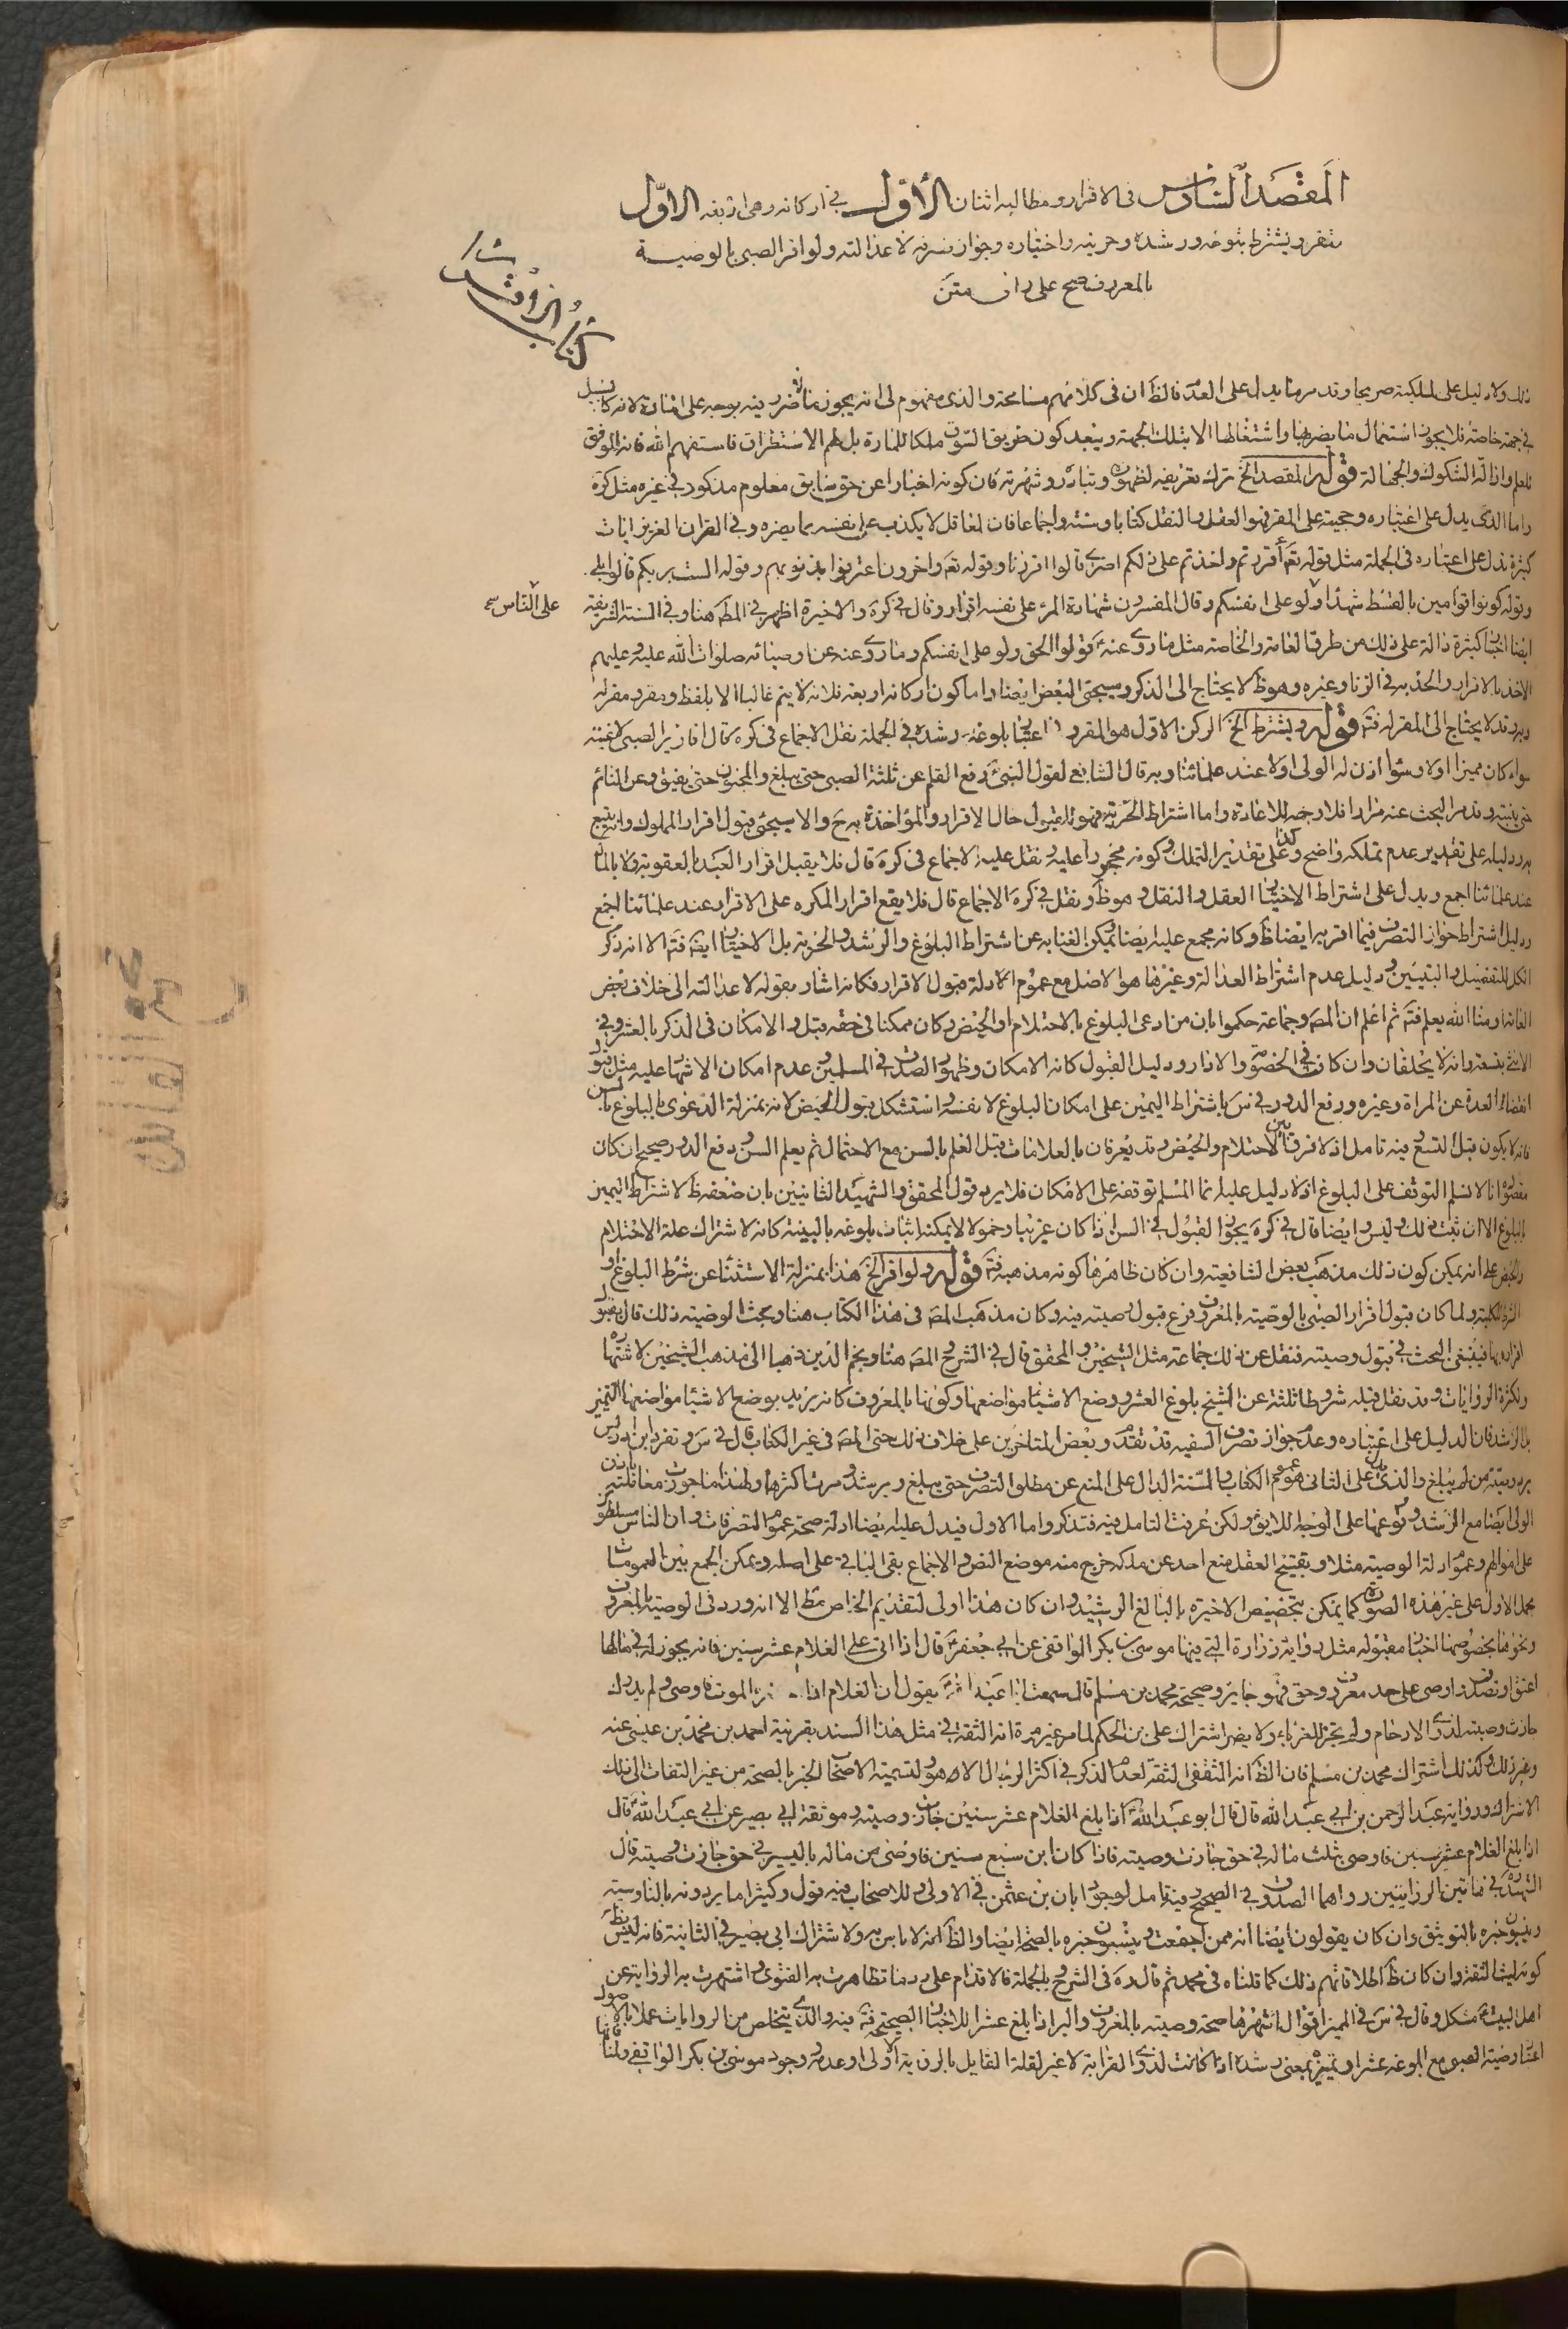 المقصد السادس في الاقرار ومطالبه اثنان الأوّل في اركانه وهي اربعة الاوّل
المقر ويشترط بلوغه ورشده وحريته واختياره وجواز تصرفه لا عدالته ولو اقر الصبي بالوصية
بالمعروف صح على راى متن
ذلك ولا دليل على الملكية صريحا وقد مر ما يدل على العدم فالظ ان في كلامهم مسامحة والذي مفهوم لي انه يجوز
في جهة خاصة فلا يجوز استعمال ما يضر بها واشتغالها الا بتلك الجهة ويبعد كون طريق السوق ملكا للمارة بل لهم الاستطراق فاستفهم الله فانه الموفق
للعلم وازالة الشكوك والجهالة قوله المقصد الخ ترك تعريفه لظهوره وتبادره وشهرته فان كونه اخبارا عن حق سابق معلوم مذكور في غيره مثل كرة
واما الذي يدل على اعتباره وحجيته على المقر فهو العقل والنقل كتابا وسنة واجماعا فان العاقل لا يكذب على نفسه بما يضره وفي القران العزيز ايات
كثيرة تدل على اعتباره في الجملة مثل قوله تعَ أقررتم واخذتم على ذلكم اصري قالوا اقررنا وقوله تعَ واخرون اعترفوا بذنوبهم وقوله الست بربكم قالوا بلى
وقوله كونوا قوامين بالقسط شهداء ولو على انفسكم وقال المفسرون شهادة المرء على نفسه اقرار وقال في كرة والاخيرة اظهر في المط هنا وفي السنة الشريفة
على الناس صح
ايضا اخبار كثيرة دالة على ذلك من طرق العامة والخاصة مثل ما روى عنه ص قولوا الحق ولو على انفسكم وما روى عنه عن اوصيائه صلوات الله عليه وعليهم
الاخذ بالاقرار والحد به في الزنا وغيره وهو ظ لا يحتاج الى الذكر وسيجئ البعض ايضا واما كون اركانه اربعة فلانه لا يتم غالبا الا بلفظ ومقر ومقر له
وبه وقد لا يحتاج الى المقر له فتَه قوله ويشترط الخ الركن الاول هو المقر و اعتبار بلوغه ورشده في الجملة نقل الاجماع في كره قال اقارير الصبي لاغية
سواء كان مميزا اولا وسواء اذن له الولى اولا عند علمائنا وبه قال الشافعي لقول النبي ص رفع القلم عن ثلثة الصبي حتى يبلغ والمجنون حتى يفيق وعن النائم
حتى ينتبه وقد مر البحث عنه مرارا فلا وجه للاعادة واما اشتراط الحرية فهو للقبول حال الاقرار والمؤاخذة به ح والا سيجئ قبول اقرار المملوك وانه يتبع
به ودليله على تقدير عدم تملكه واضح وكذا على تقدير التملك وكونه محجورا عليه ونقل عليه الاجماع في كرة قال فلا يقبل اقرار العبد بالعقوبة ولا بالمال
عند علمائنا اجمع ويدل على اشتراط الاختيار العقل والنقل وهو ظ ونقل في كره الاجماع قال فلا يقع اقرار المكره على الاقرار عند علمائنا اجمع
ودليل اشتراط جواز التصرف فيما اقر به ايضا ظ وكانه مجمع عليه ايضا ويمكن الغنا به عن اشتراط البلوغ والرشد والحرية بل الاختيار ايضَ فتَه الا انه ذكر
الكل للتفصيل والتبيين ودليل عدم اشتراط العدالة وغيرها هو الاصل مع عموم الادلة قبول الاقرار فكانه اشار بقوله لا عدالته الى خلاف بعض
العامة او منا الله يعلم فتَه ثم اعلم ان المصَ وجماعة حكموا بان من ادعى البلوغ بالاحتلام او الحيض وكان ممكنا في حقه قبل والامكان في الذكر بالعشر وفي
الانثى بتسعة وانه لا يحلفان وان كان في الخصومة والاقرار ودليل القبول كانه الامكان وظهور الصدق في المسلمين وعدم امكان الاشهاد عليه مثل قبول
انقضاء العدة عن المراة وغيره ورفع الدور في س باشتراط اليمين على امكان البلوغ لا نفسه واستشكل قبول الحيض لانه بمنزلة الدعوى بالبلوغ بالسن
فانه لا يكون قبل التسع وفيه تامل اذ لا فرق بين الاحتلام والحيض وقد يعرفان بالعلامات قبل العلم بالسن مع الاحتمال ثم يعلم السن ودفع الدور صحيح ان كان
مقصودا انا لا نسلم التوقف على البلوغ اذ لا دليل عليه انما المسلم توقفه على الامكان فلا يرد قول المحقق والشهيد الثانيين بان ضعفه ظ لاشتراط اليمين
بالبلوغ الا ان ثبت ذلك وليس ايضا قال في كره يجوز القبول في السن اذا كان غريبا او خمولا لا يمكنه اثبات بلوغه بالبينة كانه لاشتراك علة الاحتلام
والحيض علم انه يمكن كون ذلك مذهب بعض الشافعية وان كان ظاهرها كونه مذهبه فتَه قوله ولو اقر الخ هذا بمنزلة الاستثناء عن شرط البلوغ او
ولما كان قبول اقرار الصبي بالوصية بالمعروف فرع قبول وصيته فيه وكان مذهب المصَ في هذا الكتاب هنا وبحث الوصية ذلك قال بقبول
اقراره بها فينبغي البحث في قبول وصيته فنقل عن ذلك جماعة مثل الشيخين والمحقق قال في الشرح المصَ هنا ويجم الذين ذهبوا الى مذهب الشيخين لاشتهارها
ولكثرة الروايات وقد نقل قبله شروطا ثلثة عن الشيخ بلوغ العشر ووضع الاشياء مواضعها وكونها بالمعروف كانه يريد بوضع الاشياء مواضعها التميز
بل الرشد فان الدليل على اعتباره وعدم جواز تصرف السفيه قد تقدم وبعض المتاخرين على خلاف ذلك حتى المصَ في غير الكتاب قال في س وتفرد ابن ادريس
برد وصية من لم يبلغ والذي يدل على الثاني عموم الكتاب والسنة الدال على المنع عن مطلق التصرف حتى يبلغ ويرشد وقد مرت اكثرها ولهذا ما جوزت معاملته باذن
الولى ايضا مع الرشد ووقوعها على الوجه اللايق ولكن عرفت التامل فيه فتذكر واما الاول فيدل عليه ايضا ادلة صحة عموم التصرفات وان الناس مسلطون
على اموالهم وعموم ادلة الوصية مثلا ويقبح العقل منع احد عن ملكه خرج منه موضع النص والاجماع بقى الباقي على اصله ويمكن الجمع بين العمومات
بحمل الاول على غير هذه الصورة كما يمكن بتخصيص الاخيرة بالبالغ الرشيد وان كان هذا اولى لتقديم الخاص مط الا انه ورد في الوصية بالمعروف
ونحوها بخصوصها اخبار مقبولة مثل رواية زرارة التي فيها موسى بن بكر الواقفي عن ابي جعفر ع قال اذا اتى على الغلام عشر سنين فانه يجوز له في ماله ما
اعتق او تصدق او اوصى على حد معروف وحق فهو جايز وصحيحة محمد بن مسلم قال سمعت ابا عبد الله ع يقول ان الغلام اذا حضره الموت فاوصى ولم يدرك
جازت وصيته لذوى الارحام ولم يجز للغرباء ولا يضر اشتراك على بن الحكم لما مر غير مرة انه الثقة في مثل هذا السند بقرينة احمد بن محمد بن عيسى عنه
وغير ذلك وكذلك اشتراك محمد بن مسلم فان الظ انه الثقفي الثقة لعدم الذكر في اكثر الرجال الا هو ولتسمية الاصحاب الخبر بالصحة من غير التفات الى ذلك
الاشتراك ورواية عبد الرحمن بن ابي عبد الله قال قال ابو عبد الله ع اذا بلغ الغلام عشر سنين جازت وصيته وموثقة ابي بصير عن ابي عبد الله ع قال
اذا بلغ الغلام عشر سنين فاوصى بثلث ماله في حق جازت وصيته فاذا كان ابن سبع سنين فاوصى من ماله باليسير في حق جازت وصيته قال
الشهيد في هاتين الروايتين رواهما الصدوق في الصحيح وفيه تامل لوجود ابان بن عثمن في الاولى وللاصحاب فيه قول وكثيرا ما يردونه بالناوسية
ويسمون خبره بالتوثيق وان كان يقولون ايضا انه ممن اجمعت ويسمون خبره بالصحة ايضا والظ انه لا باس به ولاشتراك ابي بصير في الثانية فانه ليس بظ
كونه ليث الثقة وان كان ظ اطلاقاتهم ذلك كما قلناه في محمد ثم قال ره في الشرح بالجملة فالاقدام على رد ما تظاهرت به الفتوى واشتهرت به الرواية عن
اهل البيت ع مشكل وقال في س في المميز اقوال اشهرها صحة وصيته بالمعروف والبر اذا بلغ عشرا للاخبار الصحيحة فتَه فيه والذي يتخلص من الروايات عملا بالاصول
اعتبار وصية الصبي مع بلوغه عشرا وتميزه بمعنى رشده اذا كانت لذوى القرابة لا غير لقلة القايل بالرواية الاولى او عدمه ووجود موسى بن بكر الواقفي ولمنافاتها